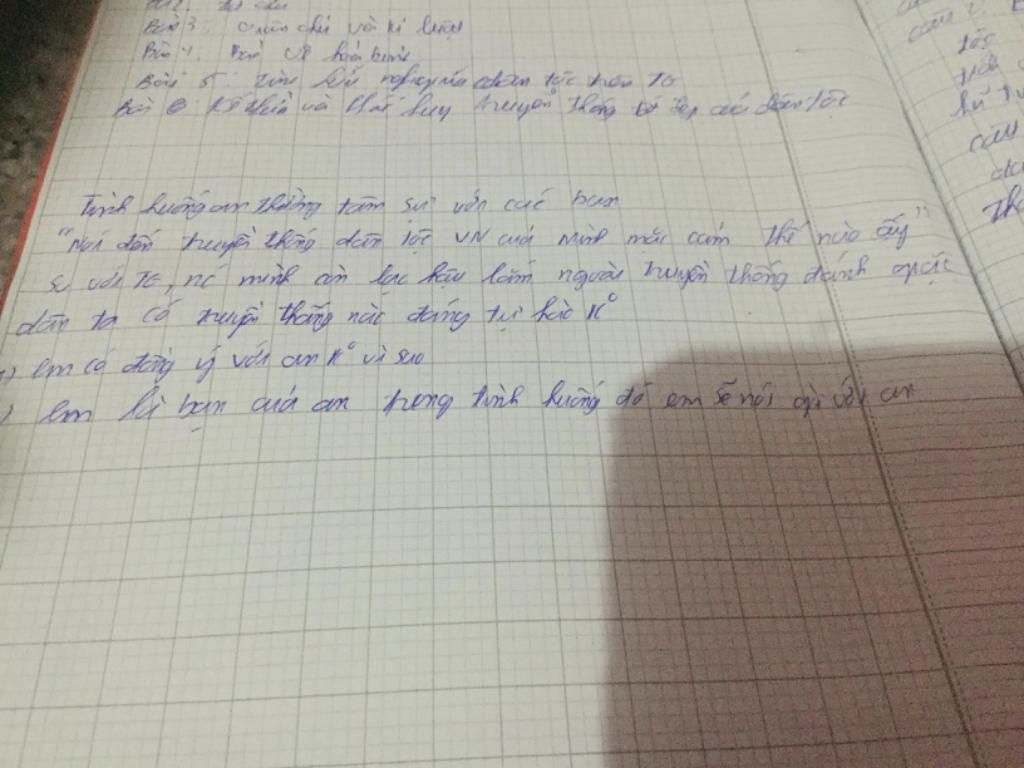 Bài 3: dân chủ và kỉ luật
Bài 4: Bảo vệ hoà bình
Bài 5: Tình hữu nghị giữa các dân tộc trên TG
Bài 6 Kế thừa và Phát huy truyền thống tốt đẹp của dân tộc
Tình huống an thường tâm sự với các bạn
"Nói đến truyền thống dân tộc VN của mình mặc cảm thế nào ấy"
So với TG, nc mình còn lạc hậu lắm ngoài truyền thống đánh giặc
dân ta có truyền thống nào đáng tự hào k⁰
em có đồng ý với an k⁰ vì sao
em là bạn của an trong tình huống đó em sẽ nói gì với an